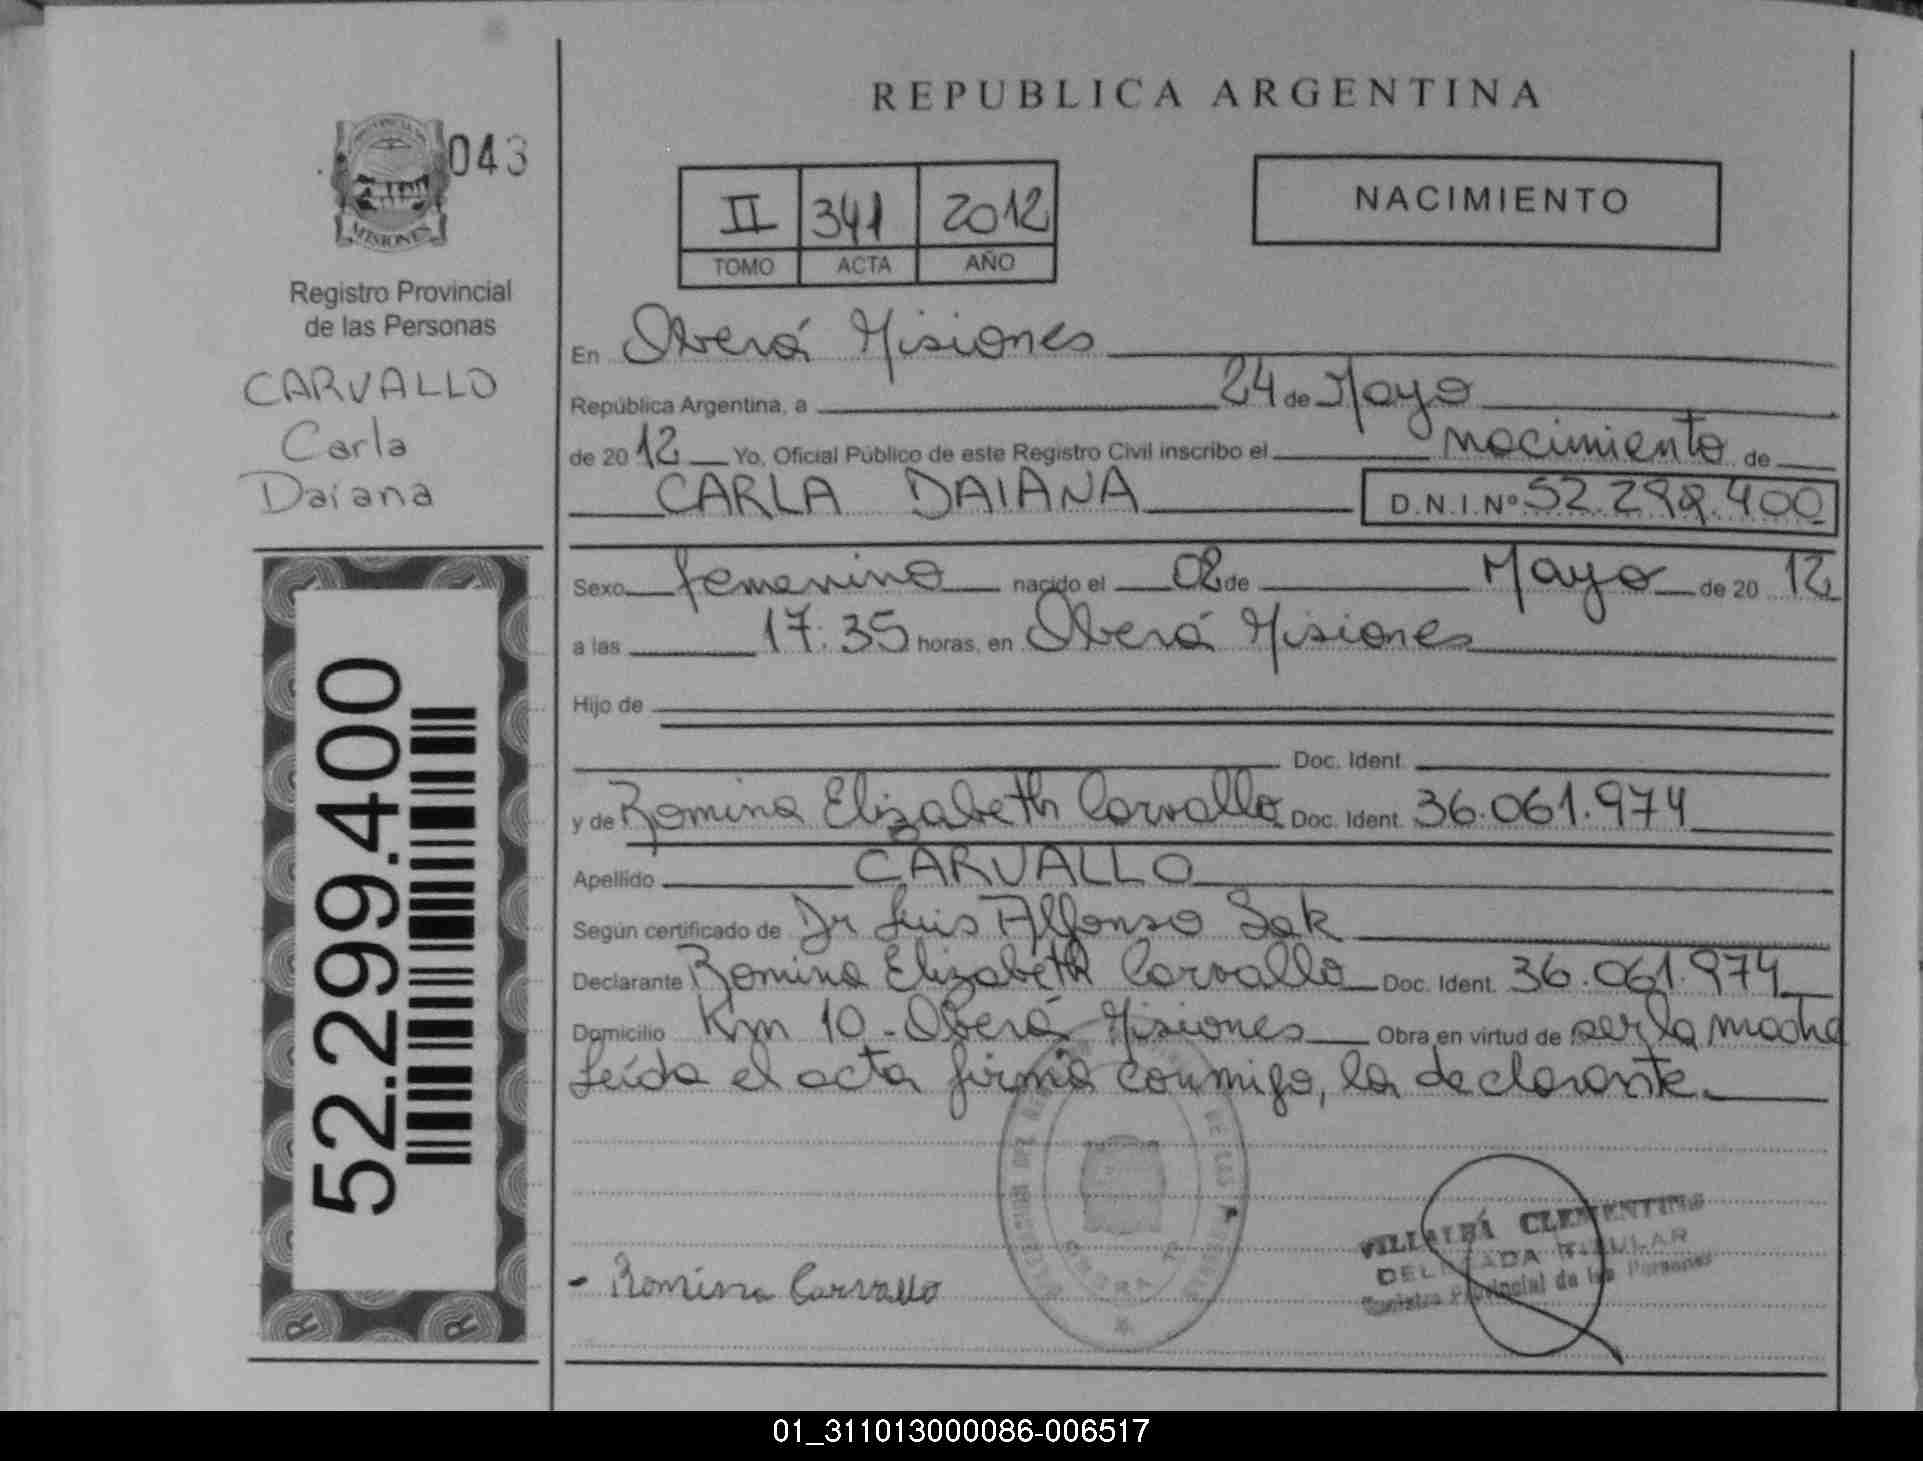 REPUBLICA ARGENTINA
043
MISIONES
Registro Provincial
de las Personas
CARVALLO
Carla
Daiana
52.299.400
II 341 2012
TOMO ACTA AÑO
NACIMIENTO
En Oberá Misiones
República Argentina, a 24 de Mayo
de 2012 Yo, Oficial Público de este Registro Civil inscribo el nacimiento de
CARLA DAIANA D.N.I. Nº 52.299.400
Sexo femenino nacido el 02 de Mayo de 2012
a las 17:35 horas, en Oberá Misiones
Hijo de
Doc. Ident.
y de Romina Elizabeth Carvallo Doc. Ident. 36.061.974
Apellido CARVALLO
Según certificado de Dr Luis Alfonso Sak
Declarante Romina Elizabeth Carvallo Doc. Ident. 36.061.974
Domicilio Km 10 - Oberá Misiones Obra en virtud de ser la madre
Leída el acta firma conmigo, la declarante.
- Romina Carvallo
VILLALBA CLEMENTINA
DELEGADA TITULAR
Registro Provincial de las Personas
01_311013000086-006517